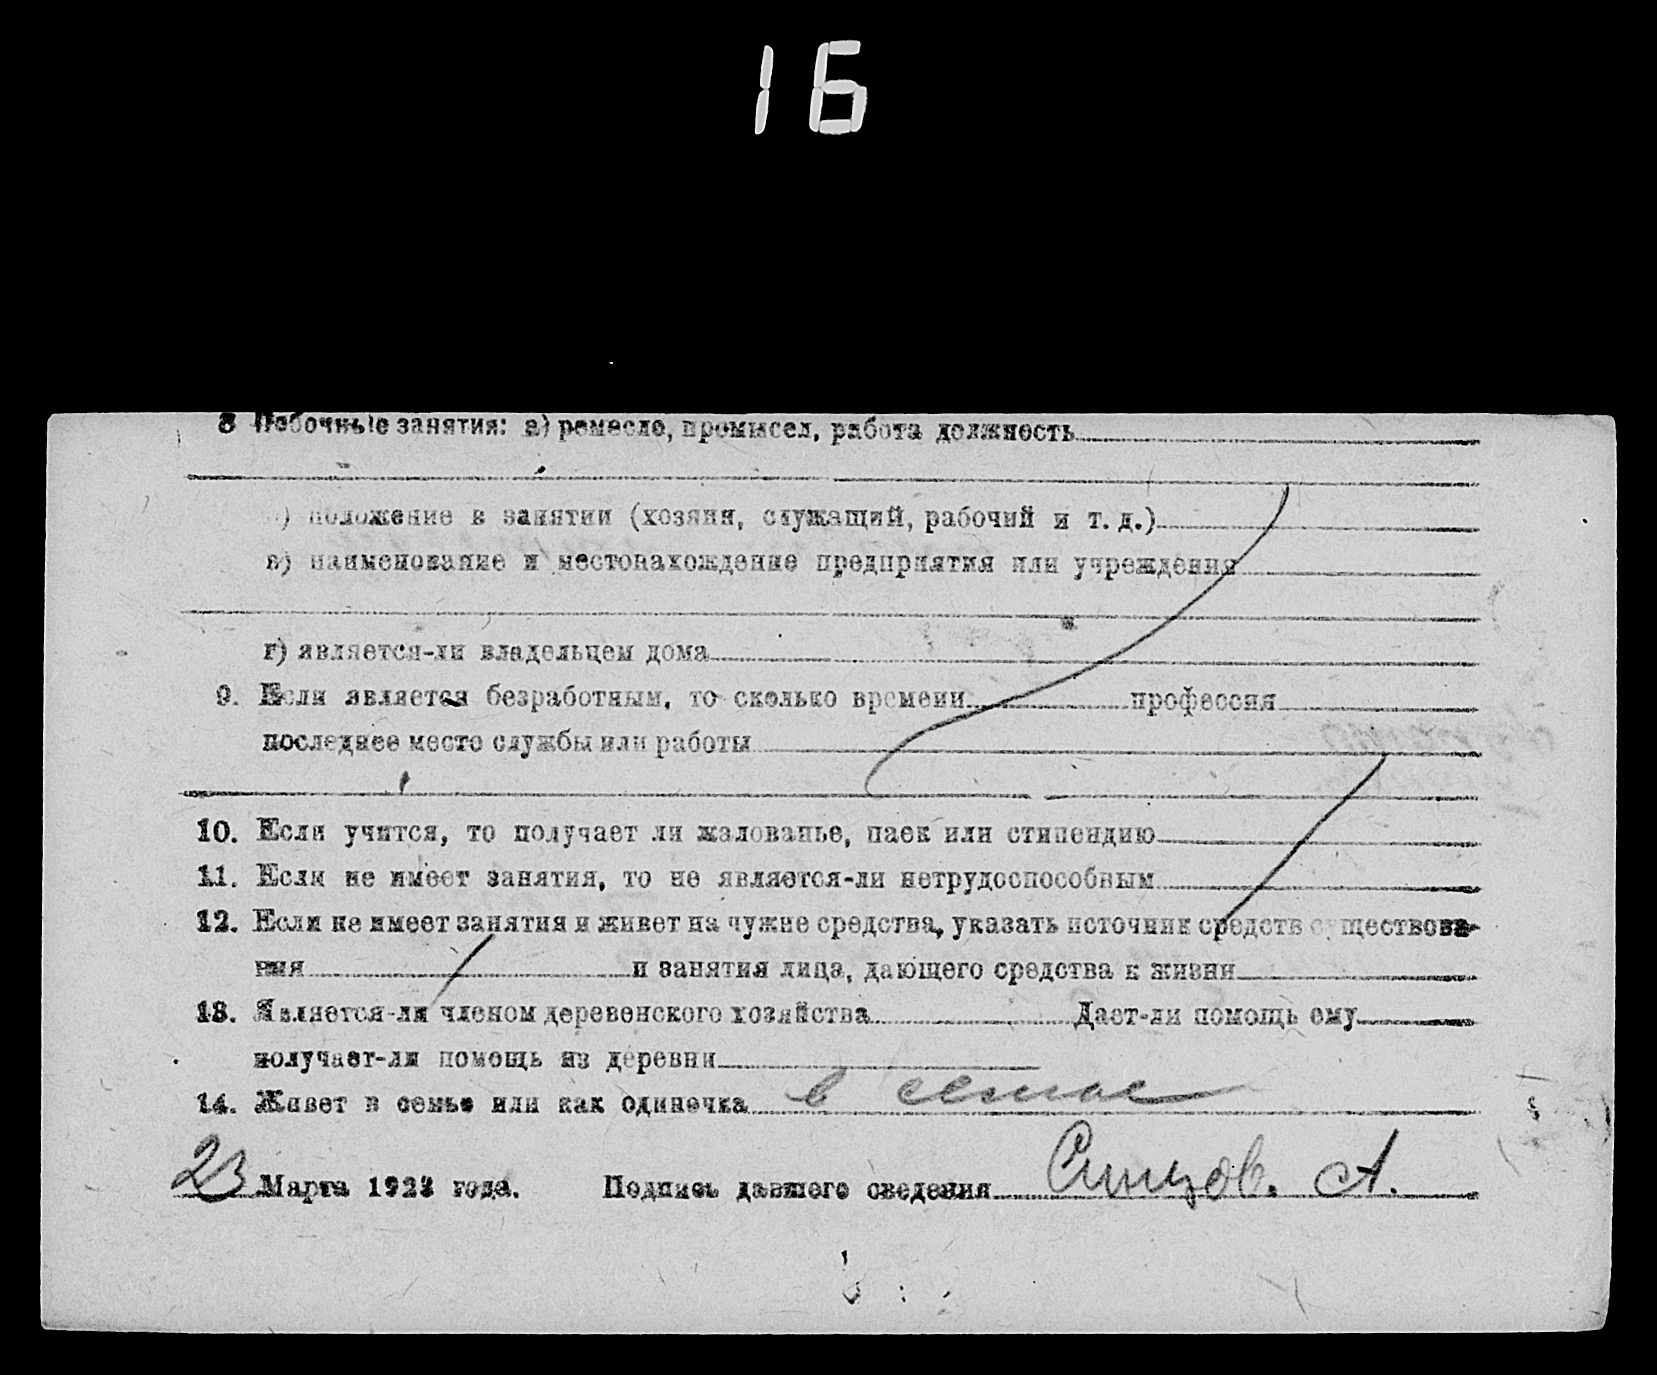 16
8 Побочные занятия: а) ремесло, промысел, работа должность
б) положение в занятии (хозяин, служащий, рабочий и т. д.)
в) наименование и местонахождение предприятия или учреждения
г) является-ли владельцем дома
9. Если является безработным, то сколько времени профессия
последнее место службы или работы
10. Если учится, то получает ли жалованье, паек или стипендию
11. Если не имеет занятия, то не является-ли нетрудоспособным
12. Если не имеет занятия и живет на чужие средства, указать источник средств существова-
ния и занятия лица, дающего средства к жизни
13. Является-ли членом деревенского хозяйства Дает-ли помощь ему
получает-ли помощь из деревни
14. Живет в семье или как одиночка в семье
23 Марта 1922 года. Подпись давшего сведения Синцов. А.